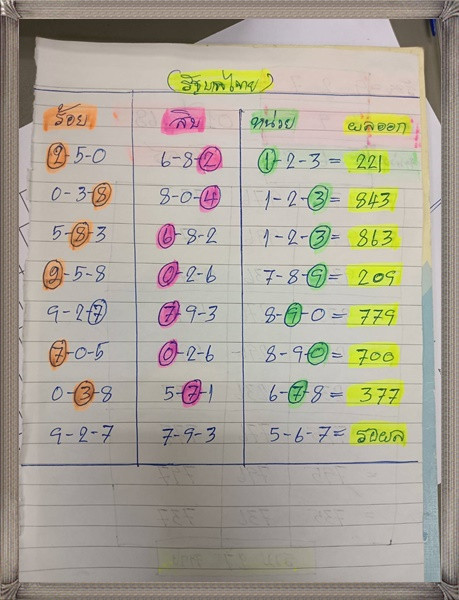 รัฐบาลไทย
ร้อย สิบ หน่วย ผลออก
2-5-0 6-8-2 1-2-3 = 221
0-3-8 8-0-4 1-2-3 = 843
5-8-3 6-8-2 1-2-3 = 863
2-5-8 0-2-6 7-8-9 = 209
9-2-7 7-9-3 8-9-0 = 779
7-0-5 0-2-6 8-9-0 = 700
0-3-8 5-7-1 6-7-8 = 377
9-2-7 7-9-3 5-6-7 = รอผล